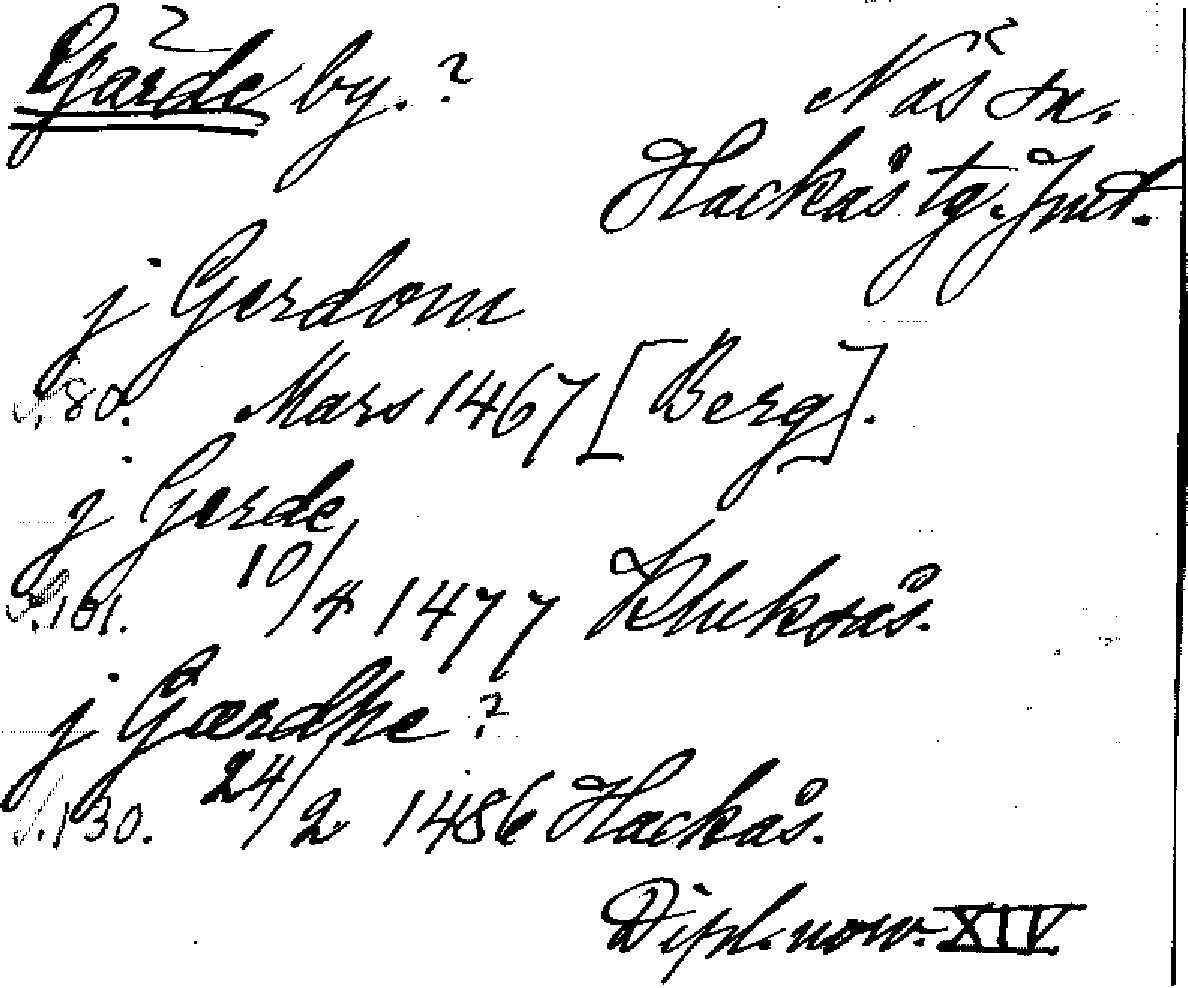 Gärde by.?
Näs sn.
Hackås tg. Jmt.
j Gerdom
S. 80. Mars 1467 [Berg].
j Gerde
S. 101. 10/4 1477 Kluksås.
j Gærdhe?
S. 130. 24/2 1486 Hackås.
Dipl. norv. XIV